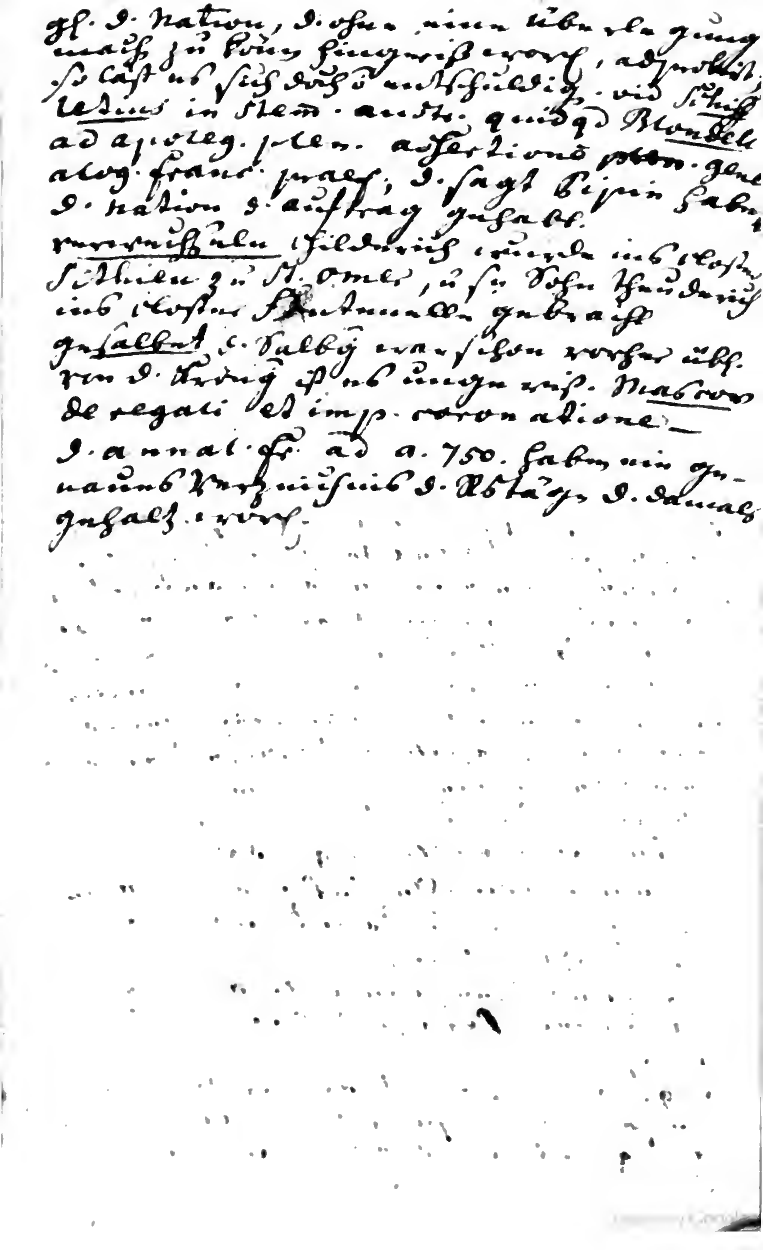 gl. d. Nation, d. ohne eine Überlegung
mach zu könn hingerißen word, adprobirt,
so läst es sich doch entschuldig. vid Schiff
letius in stem. austr. quidqd Blondell
ad apoleg. plen. assertione plen. gene
alog. franc. praef., d. sagt Pipin habe
d. Nation d. auftrag gehabt.
verwechseln Childerich wurde ins Closter
Sithieu zu St. Omer, u sn Sohn Theuderich
ins Closter Fontenelle gebracht
gesalbet d. Salbg war schon vorher übl.
von d. Kröng ist es ungewiß. Mascov
de legati et imp. coronatione —
d. annal. fr. ad a. 750. haben ein ge-
naues Verzeichnis d. RStäge d. damals
gehalt. word.